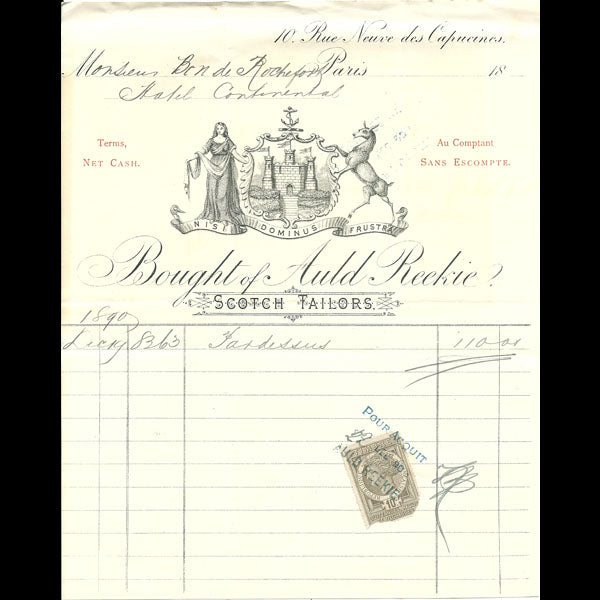 10. Rue Neuve des Capucines.
Monsieur Bon de Rochefort Paris 18
Hotel Continental
Terms,
NET CASH.
Au Comptant
SANS ESCOMPTE.
NISI DOMINUS FRUSTRA
Bought of Auld Reekie
SCOTCH TAILORS.
1890
8363 Pardessus 110 00
POUR ACQUIT
22 DEC 90
AULD REEKIE
10